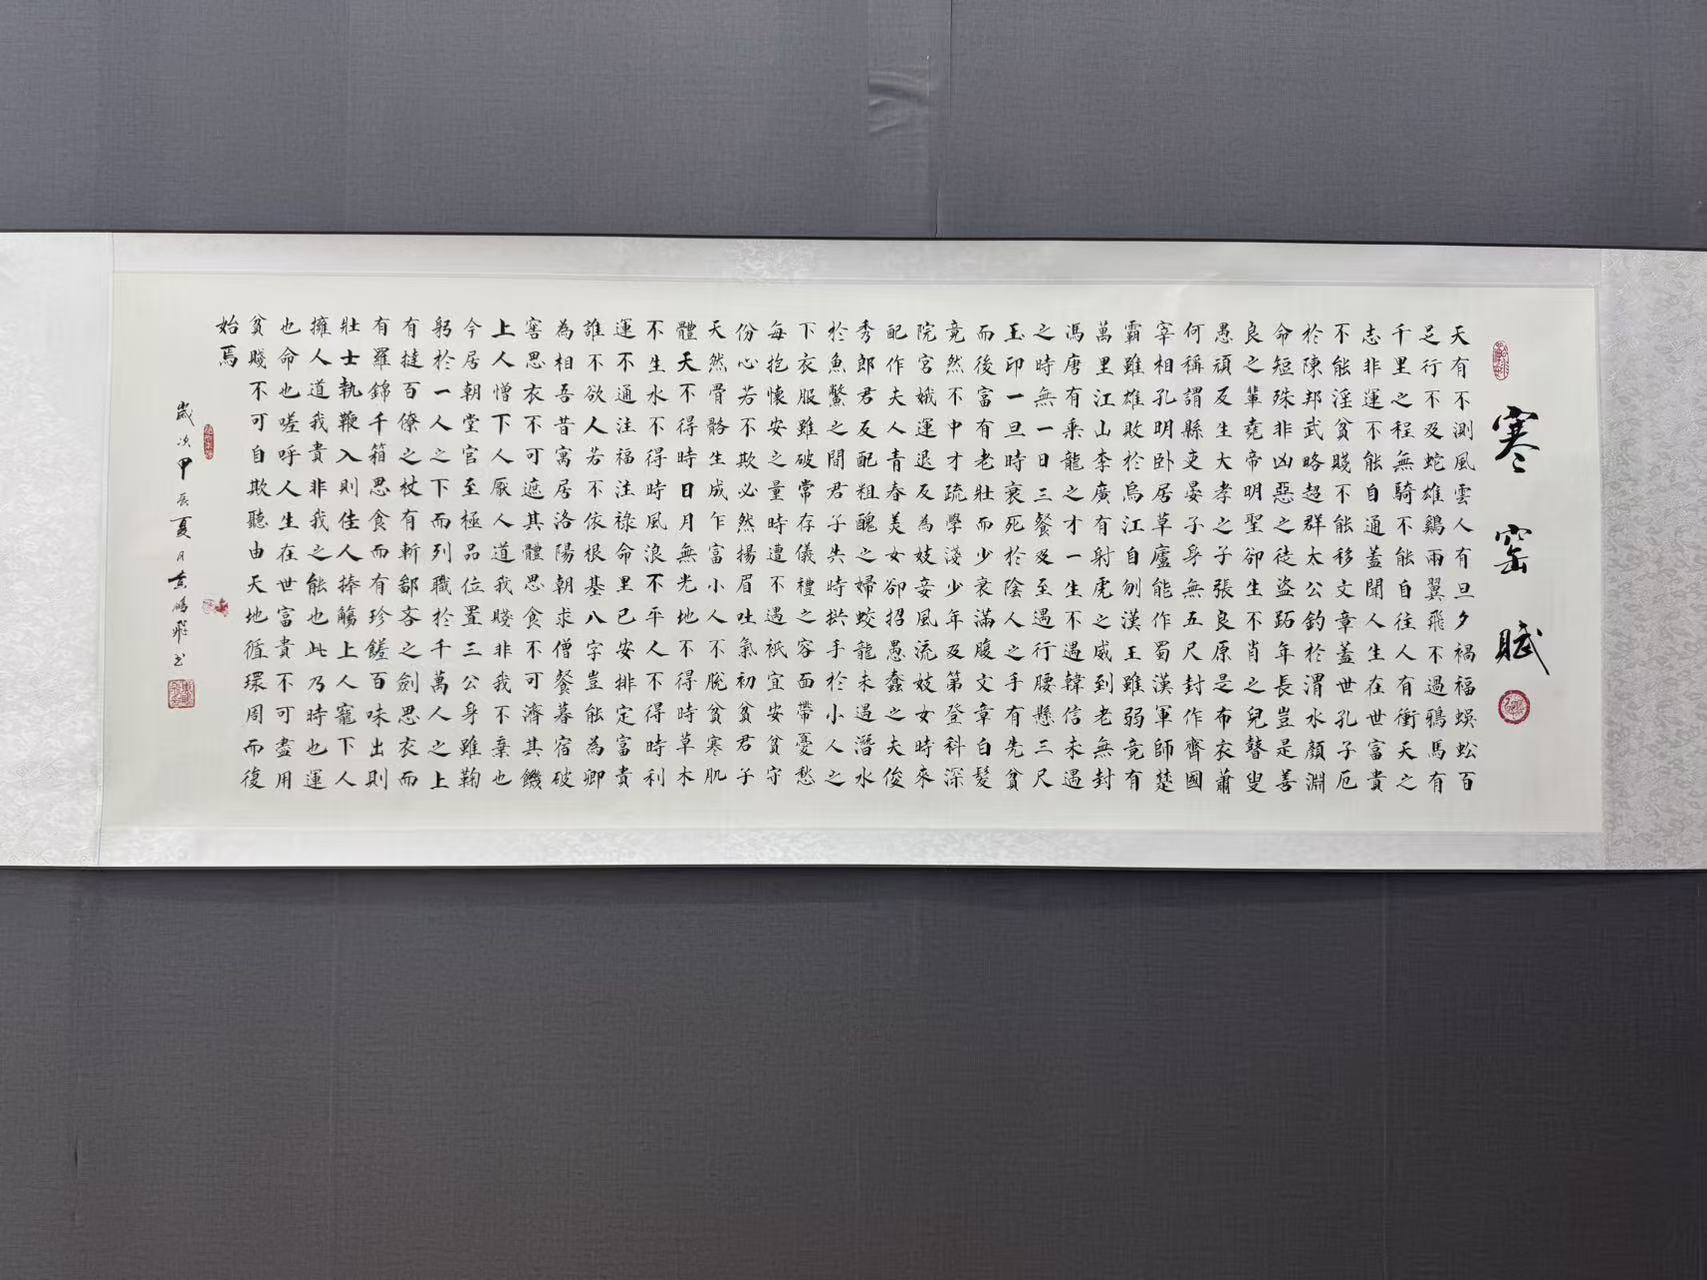 寒窑賦
天有不測風雲人有旦夕禍福蜈蚣百
足行不及蛇雄鷄兩翼飛不過鴉馬有
千里之程無騎不能自往人有衝天之
志非運不能自通蓋聞人生在世富貴
不能淫貧賤不能移文章蓋世孔子厄
於陳邦武略超群太公釣於渭水顏淵
命短殊非凶惡之徒盜跖年長豈是善
良之輩堯帝明聖卻生不肖之兒瞽叟
愚頑反生大孝之子張良原是布衣蕭
何稱謂縣吏晏子身無五尺封作齊國
宰相孔明卧居草廬能作蜀漢軍師楚
霸雖雄敗於烏江自刎漢王雖弱竟有
萬里江山李廣有射虎之威到老無封
馮唐有乘龍之才一生不遇韓信未遇
之時無一日三餐及至遇行腰懸三尺
玉印一旦時衰死於陰人之手有先貧
而後富有老壯而少衰滿腹文章白髮
竟然不中才疏學淺少年及第登科深
院宮娥運退反為妓妾風流妓女時來
配作夫人青春美女卻招愚蠢之夫俊
秀郎君反配粗醜之婦蛟龍未遇潛水
於魚鱉之間君子失時拱手於小人之
下衣服雖破常存儀禮之容面帶憂愁
每抱懷安之量時遭不遇衹宜安貧守
份心若不欺必然揚眉吐氣初貧君子
天然骨骼生成乍富小人不脫貧寒肌
體天不得時日月無光地不得時草木
不生水不得時風浪不平人不得時利
運不通注福注祿命里已安排定富貴
誰不欲人若不依根基八字豈能為卿
為相吾昔寓居洛陽朝求僧餐暮宿破
窖思衣不可遮其體思食不可濟其饑
上人憎下人厭人道我賤非我不棄也
今居朝堂官至極品位置三公身雖鞠
躬於一人之下而列職於千萬人之上
有撻百僚之杖有斬鄙吝之劍思衣而
有羅錦千箱思食而有珍饈百味出則
壯士執鞭入則佳人捧觴上人寵下人
擁人道我貴非我之能也此乃時也運
也命也嗟呼人生在世富貴不可盡用
貧賤不可自欺聽由天地循環周而復
始焉
歲次甲辰夏月黄鵬飛書